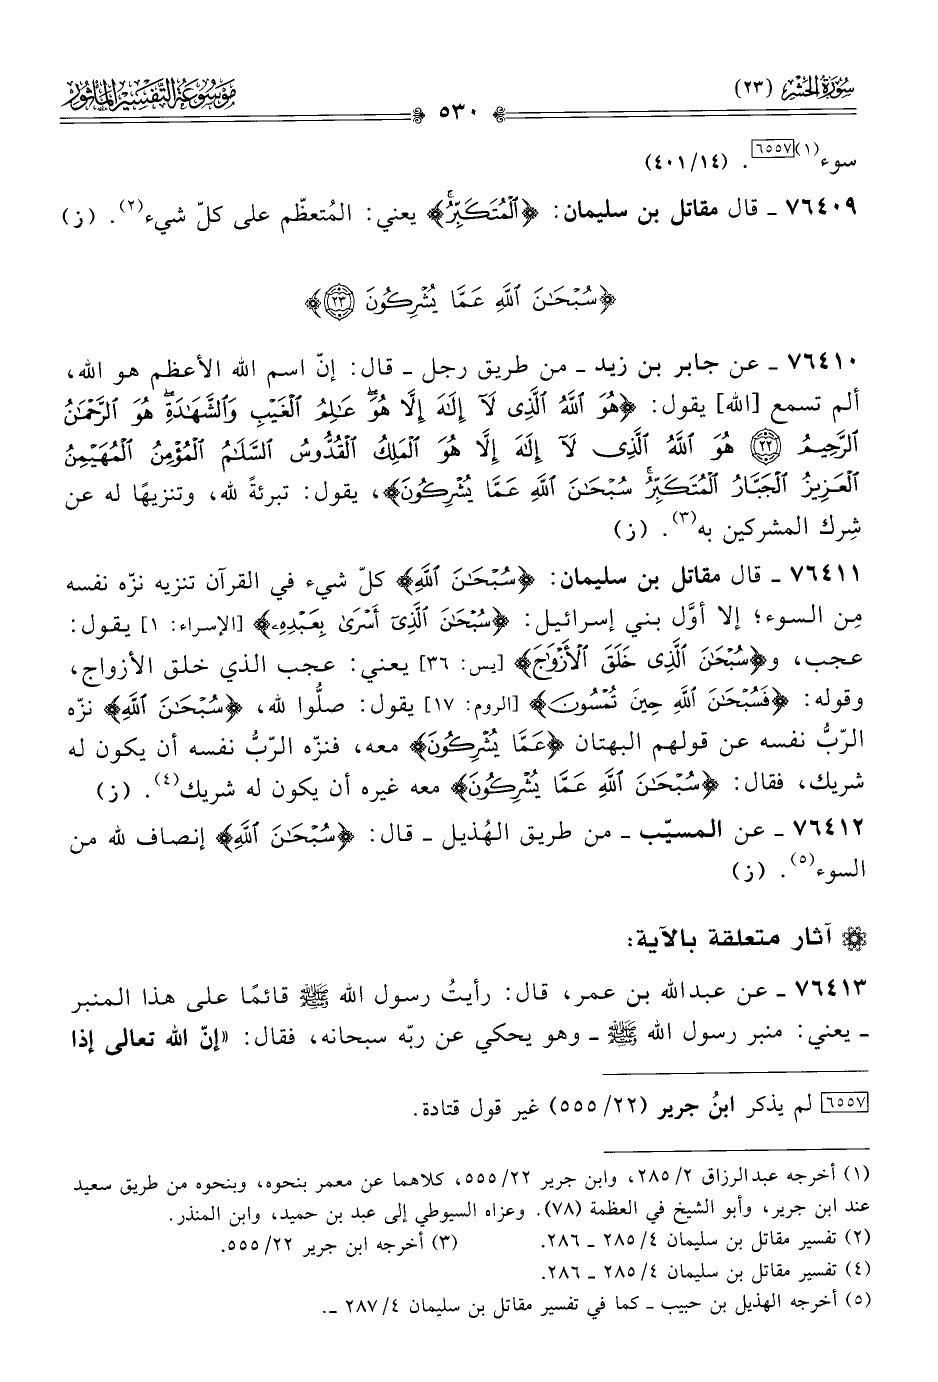 سُورَةُ الحَشْر (٢٣)
٥٣٠
مَوْسُوعَةُ التَّفْسِيرِ المَأْثُور
سوء(١)[٦٥٥٧]. (٤٠١/١٤)
٧٦٤٠٩ ـ قال مقاتل بن سليمان: ﴿ٱلْمُتَكَبِّرُۚ﴾ يعني: المُتعظّم على كلّ شيء(٢). (ز)
﴿سُبْحَٰنَ ٱللَّهِ عَمَّا يُشْرِكُونَ ٢٣﴾
٧٦٤١٠ ـ عن جابر بن زيد ـ من طريق رجل ـ قال: إنّ اسم الله الأعظم هو الله،
ألم تسمع [الله] يقول: ﴿هُوَ ٱللَّهُ ٱلَّذِى لَآ إِلَٰهَ إِلَّا هُوَۖ عَٰلِمُ ٱلْغَيْبِ وَٱلشَّهَٰدَةِۖ هُوَ ٱلرَّحْمَٰنُ
ٱلرَّحِيمُ ٢٢ هُوَ ٱللَّهُ ٱلَّذِى لَآ إِلَٰهَ إِلَّا هُوَ ٱلْمَلِكُ ٱلْقُدُّوسُ ٱلسَّلَٰمُ ٱلْمُؤْمِنُ ٱلْمُهَيْمِنُ
ٱلْعَزِيزُ ٱلْجَبَّارُ ٱلْمُتَكَبِّرُۚ سُبْحَٰنَ ٱللَّهِ عَمَّا يُشْرِكُونَ﴾، يقول: تبرئةً لله، وتنزيهًا له عن
شِرك المشركين به(٣). (ز)
٧٦٤١١ ـ قال مقاتل بن سليمان: ﴿سُبْحَٰنَ ٱللَّهِ﴾ كلّ شيء في القرآن تنزيه نزّه نفسه
مِن السوء؛ إلا أوَّل بني إسرائيل: ﴿سُبْحَٰنَ ٱلَّذِىٓ أَسْرَىٰ بِعَبْدِهِۦ﴾ [الإسراء: ١] يقول:
عجب، و﴿سُبْحَٰنَ ٱلَّذِى خَلَقَ ٱلْأَزْوَٰجَ﴾ [يس: ٣٦] يعني: عجب الذي خلق الأزواج،
وقوله: ﴿فَسُبْحَٰنَ ٱللَّهِ حِينَ تُمْسُونَ﴾ [الروم: ١٧] يقول: صلُّوا لله، ﴿سُبْحَٰنَ ٱللَّهِ﴾ نزّه
الرّبُّ نفسه عن قولهم البهتان ﴿عَمَّا يُشْرِكُونَ﴾ معه، فنزّه الرّبُّ نفسه أن يكون له
شريك، فقال: ﴿سُبْحَٰنَ ٱللَّهِ عَمَّا يُشْرِكُونَ﴾ معه غيره أن يكون له شريك(٤). (ز)
٧٦٤١٢ ـ عن المسيّب ـ من طريق الهُذيل ـ قال: ﴿سُبْحَٰنَ ٱللَّهِ﴾ إنصاف لله من
السوء(٥). (ز)
آثار متعلقة بالآية:
٧٦٤١٣ ـ عن عبدالله بن عمر، قال: رأيتُ رسول الله ﷺ قائمًا على هذا المنبر
ـ يعني: منبر رسول الله ﷺ ـ وهو يحكي عن ربّه سبحانه، فقال: «إنّ الله تعالى إذا
[٦٥٥٧] لم يذكر ابنُ جرير (٢٢/ ٥٥٥) غير قول قتادة.
(١) أخرجه عبدالرزاق ٢/ ٢٨٥، وابن جرير ٢٢/ ٥٥٥، كلاهما عن معمر بنحوه، وبنحوه من طريق سعيد
عند ابن جرير، وأبو الشيخ في العظمة (٧٨). وعزاه السيوطي إلى عبد بن حميد، وابن المنذر.
(٢) تفسير مقاتل بن سليمان ٤/ ٢٨٥ ـ ٢٨٦. (٣) أخرجه ابن جرير ٢٢/ ٥٥٥.
(٤) تفسير مقاتل بن سليمان ٤/ ٢٨٥ ـ ٢٨٦.
(٥) أخرجه الهذيل بن حبيب ـ كما في تفسير مقاتل بن سليمان ٤/ ٢٨٧ ـ.